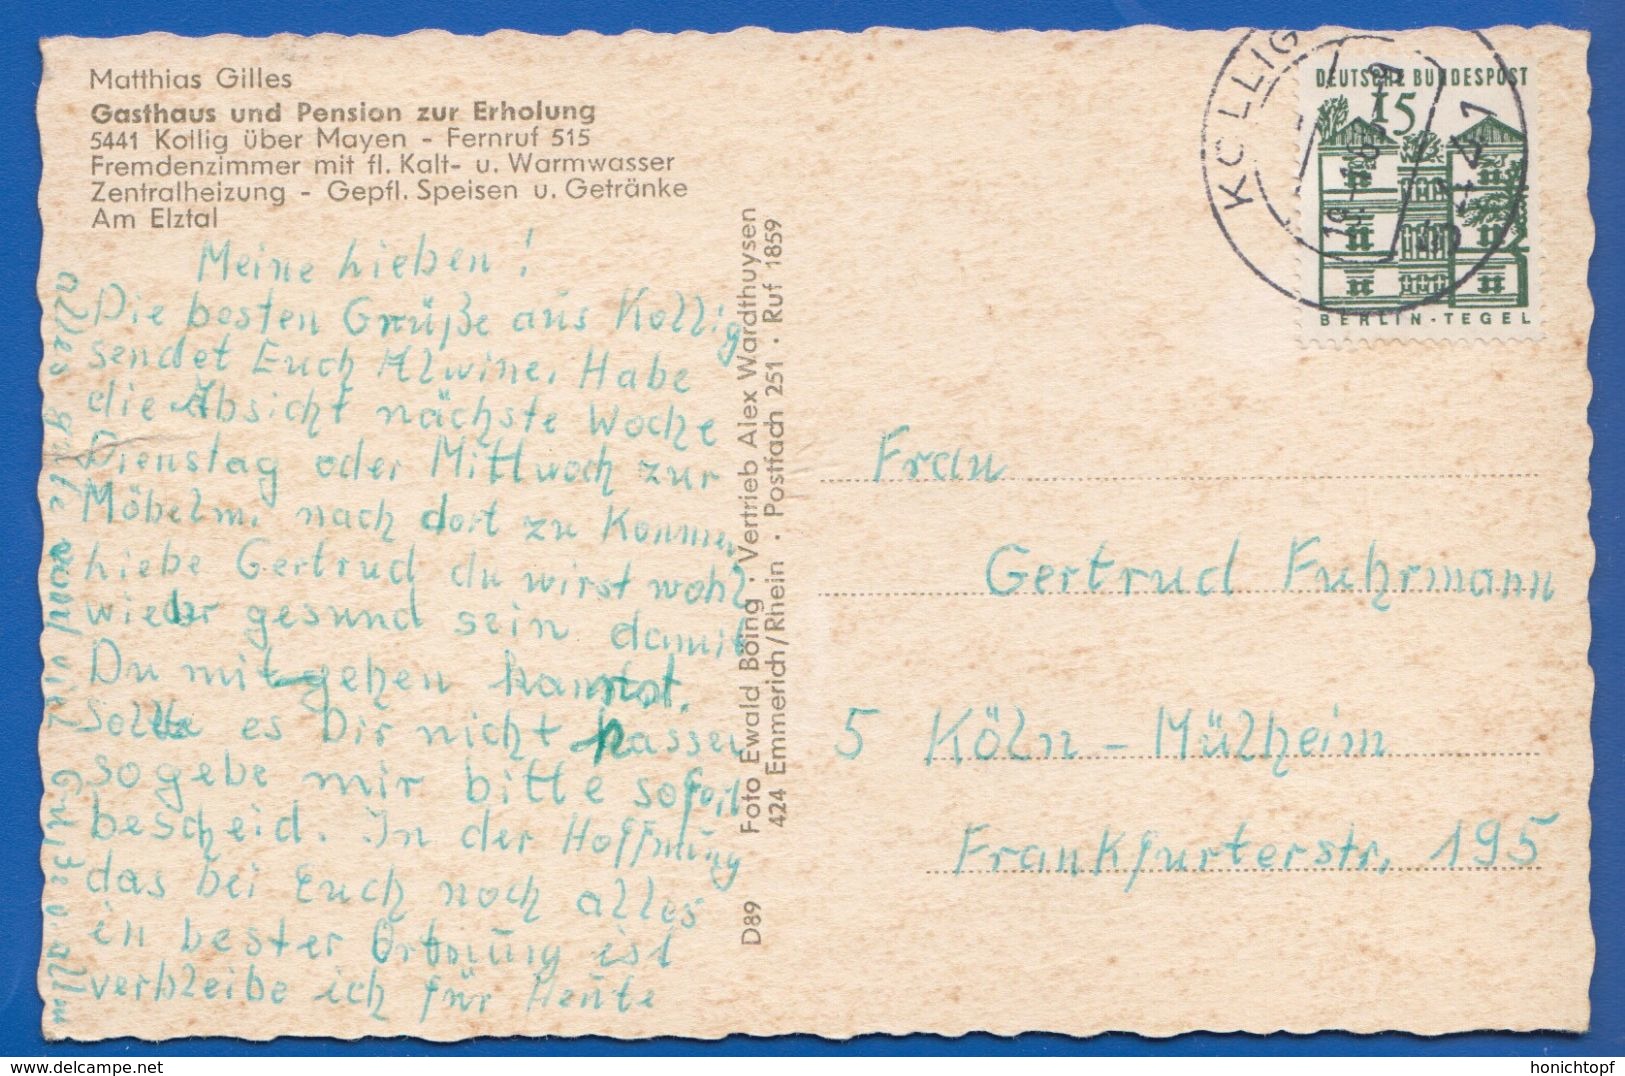 Matthias Gilles
Gasthaus und Pension zur Erholung
5441 Kollig über Mayen - Fernruf 515
Fremdenzimmer mit fl. Kalt- u. Warmwasser
Zentralheizung - Gepfl. Speisen u. Getränke
Am Elztal
Meine Lieben!
Die besten Grüße aus Kollig
sendet Euch Alwine. Habe
die Absicht nächste Woche
Dienstag oder Mittwoch zur
Möbelm. nach dort zu Kommen
Liebe Gertrud du wirst wohl
wieder gesund sein damit
Du mit gehen kannst.
Sollte es Dir nicht passen
so gebe mir bitte sofort
bescheid. In der Hoffnung
das bei Euch noch alles
in bester Ortnung ist
verbleibe ich für Heute
alles gute und viel Grüße v. allen
Foto Ewald Böing · Vertrieb Alex Wardthuysen
424 Emmerich/Rhein · Postfach 251 · Ruf 1859
D89
KOLLIG
5441
DEUTSCHE BUNDESPOST
15
BERLIN-TEGEL
Frau
Gertrud Fuhrmann
5 Köln - Mülheim
Frankfurterstr. 195
delcampe.net
honichtopf